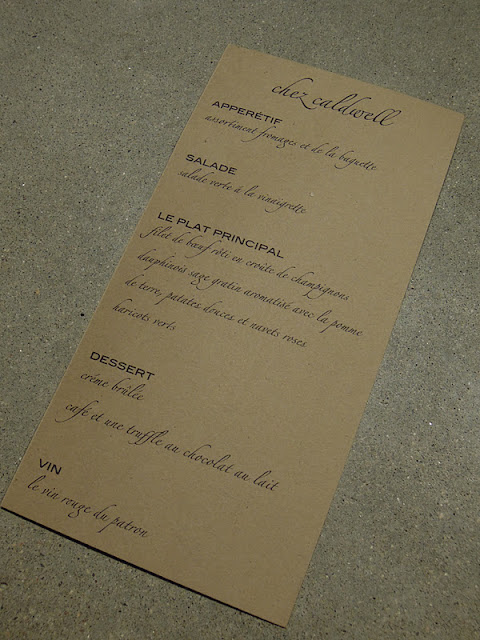 chez caldwell
APPERÉTIF
assortement fromages et de la baguette
SALADE
salade verte à la vinaigrette
LE PLAT PRINCIPAL
filet de bœuf rôti en croûte de champignons
dauphinois sage gratin aromatisé avec la pomme
de terre, patates douces et navets roses
haricots verts
DESSERT
créme brûlée
café et une truffle au chocolat au lait
VIN
le vin rouge du patron